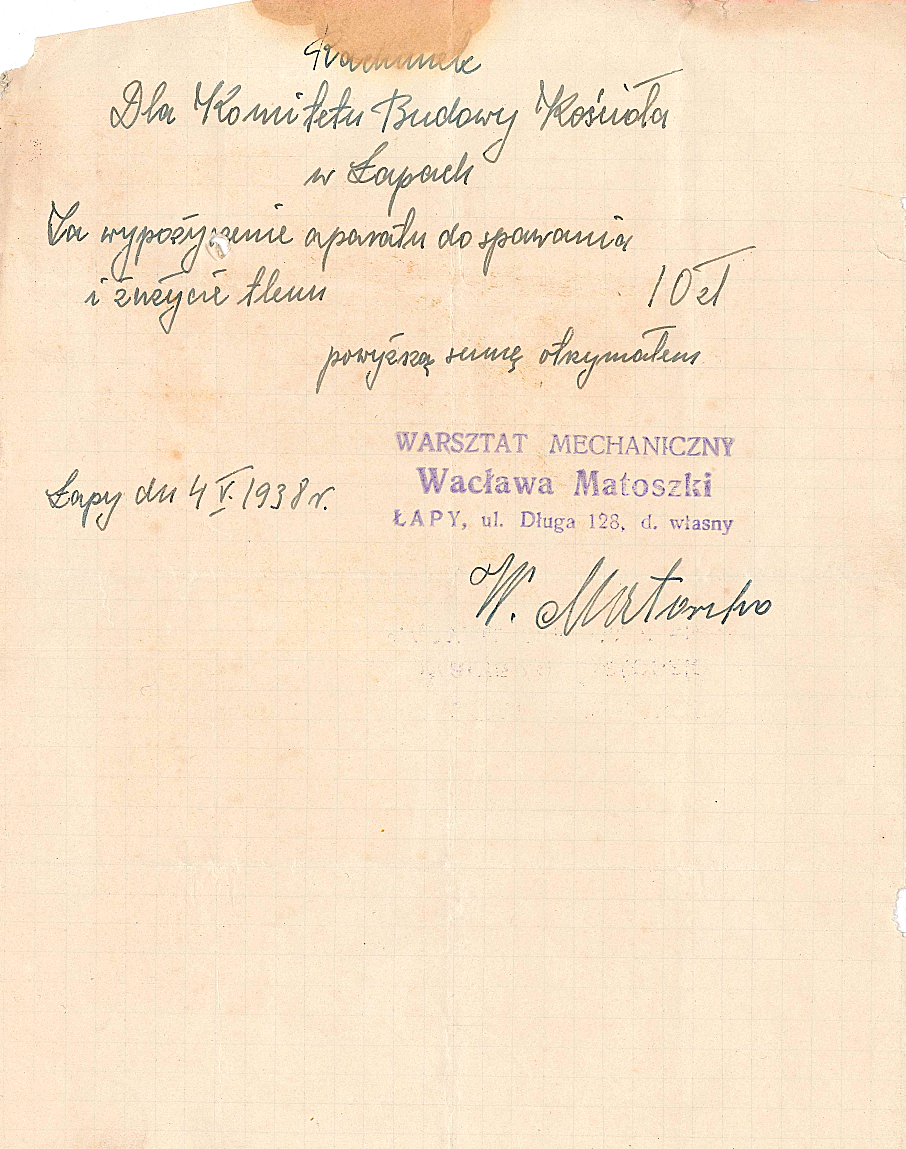 Rachunek
Dla Komitetu Budowy Kościoła
w Łapach
Za wypożyczenie aparatu do spawania
i zużycie tlenu 10 zł
powyższą sumę otrzymałem
WARSZTAT MECHANICZNY
Wacława Matoszki
ŁAPY, ul. Długa 128, d. własny
Łapy dn 4 V. 1938 r.
W. Matoszko